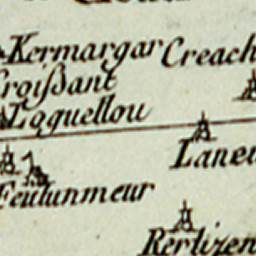 Kermargar
Creach
Croißant
Loguellou
Laneu
Feulunmeur
Kerlizen